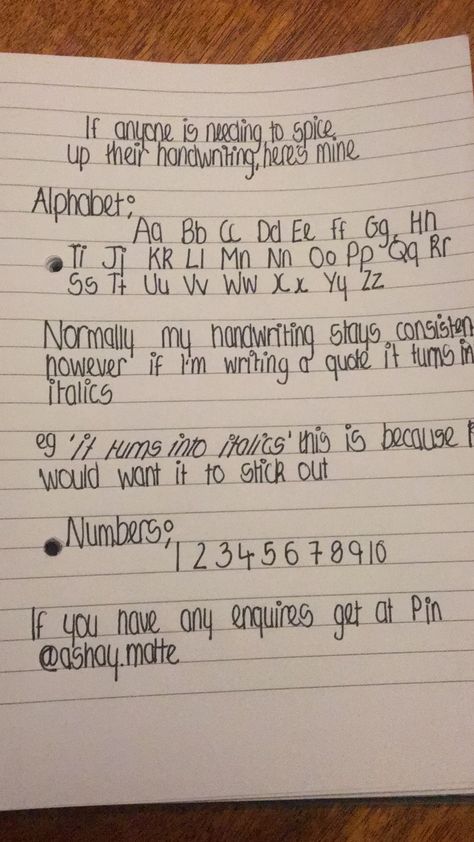 If anyone is needing to spice
up their handwriting, here's mine
Alphabet;
Aa Bb Cc Dd Ee Ff Gg, Hh
Ii Jj Kk Ll Mm Nn Oo Pp Qq Rr
Ss Tt Uu Vv Ww Xx Yy Zz
Normally my handwriting stays consisten
however if I'm writing a quote it turns in
italics
eg 'it turns into italics' this is because I
would want it to stick out
Numbers;
1 2 3 4 5 6 7 8 9 10
If you have any enquires get at Pin
@ashay.matte